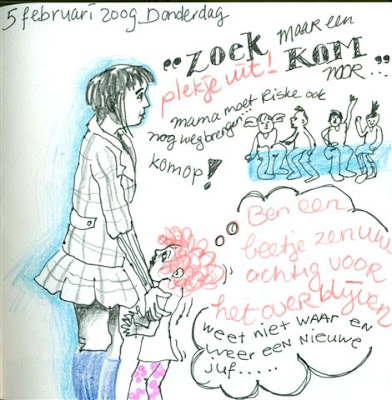 5 februari 2009 Donderdag
"ZOEK maar een
plekje uit! KOM
NOOR..."
mama moet Riske ook
nog wegbrengen..
komop!
Ben een
beetje zenuw
achtig voor
het over blijven
weet niet waar en
weer een nieuwe
juf.....